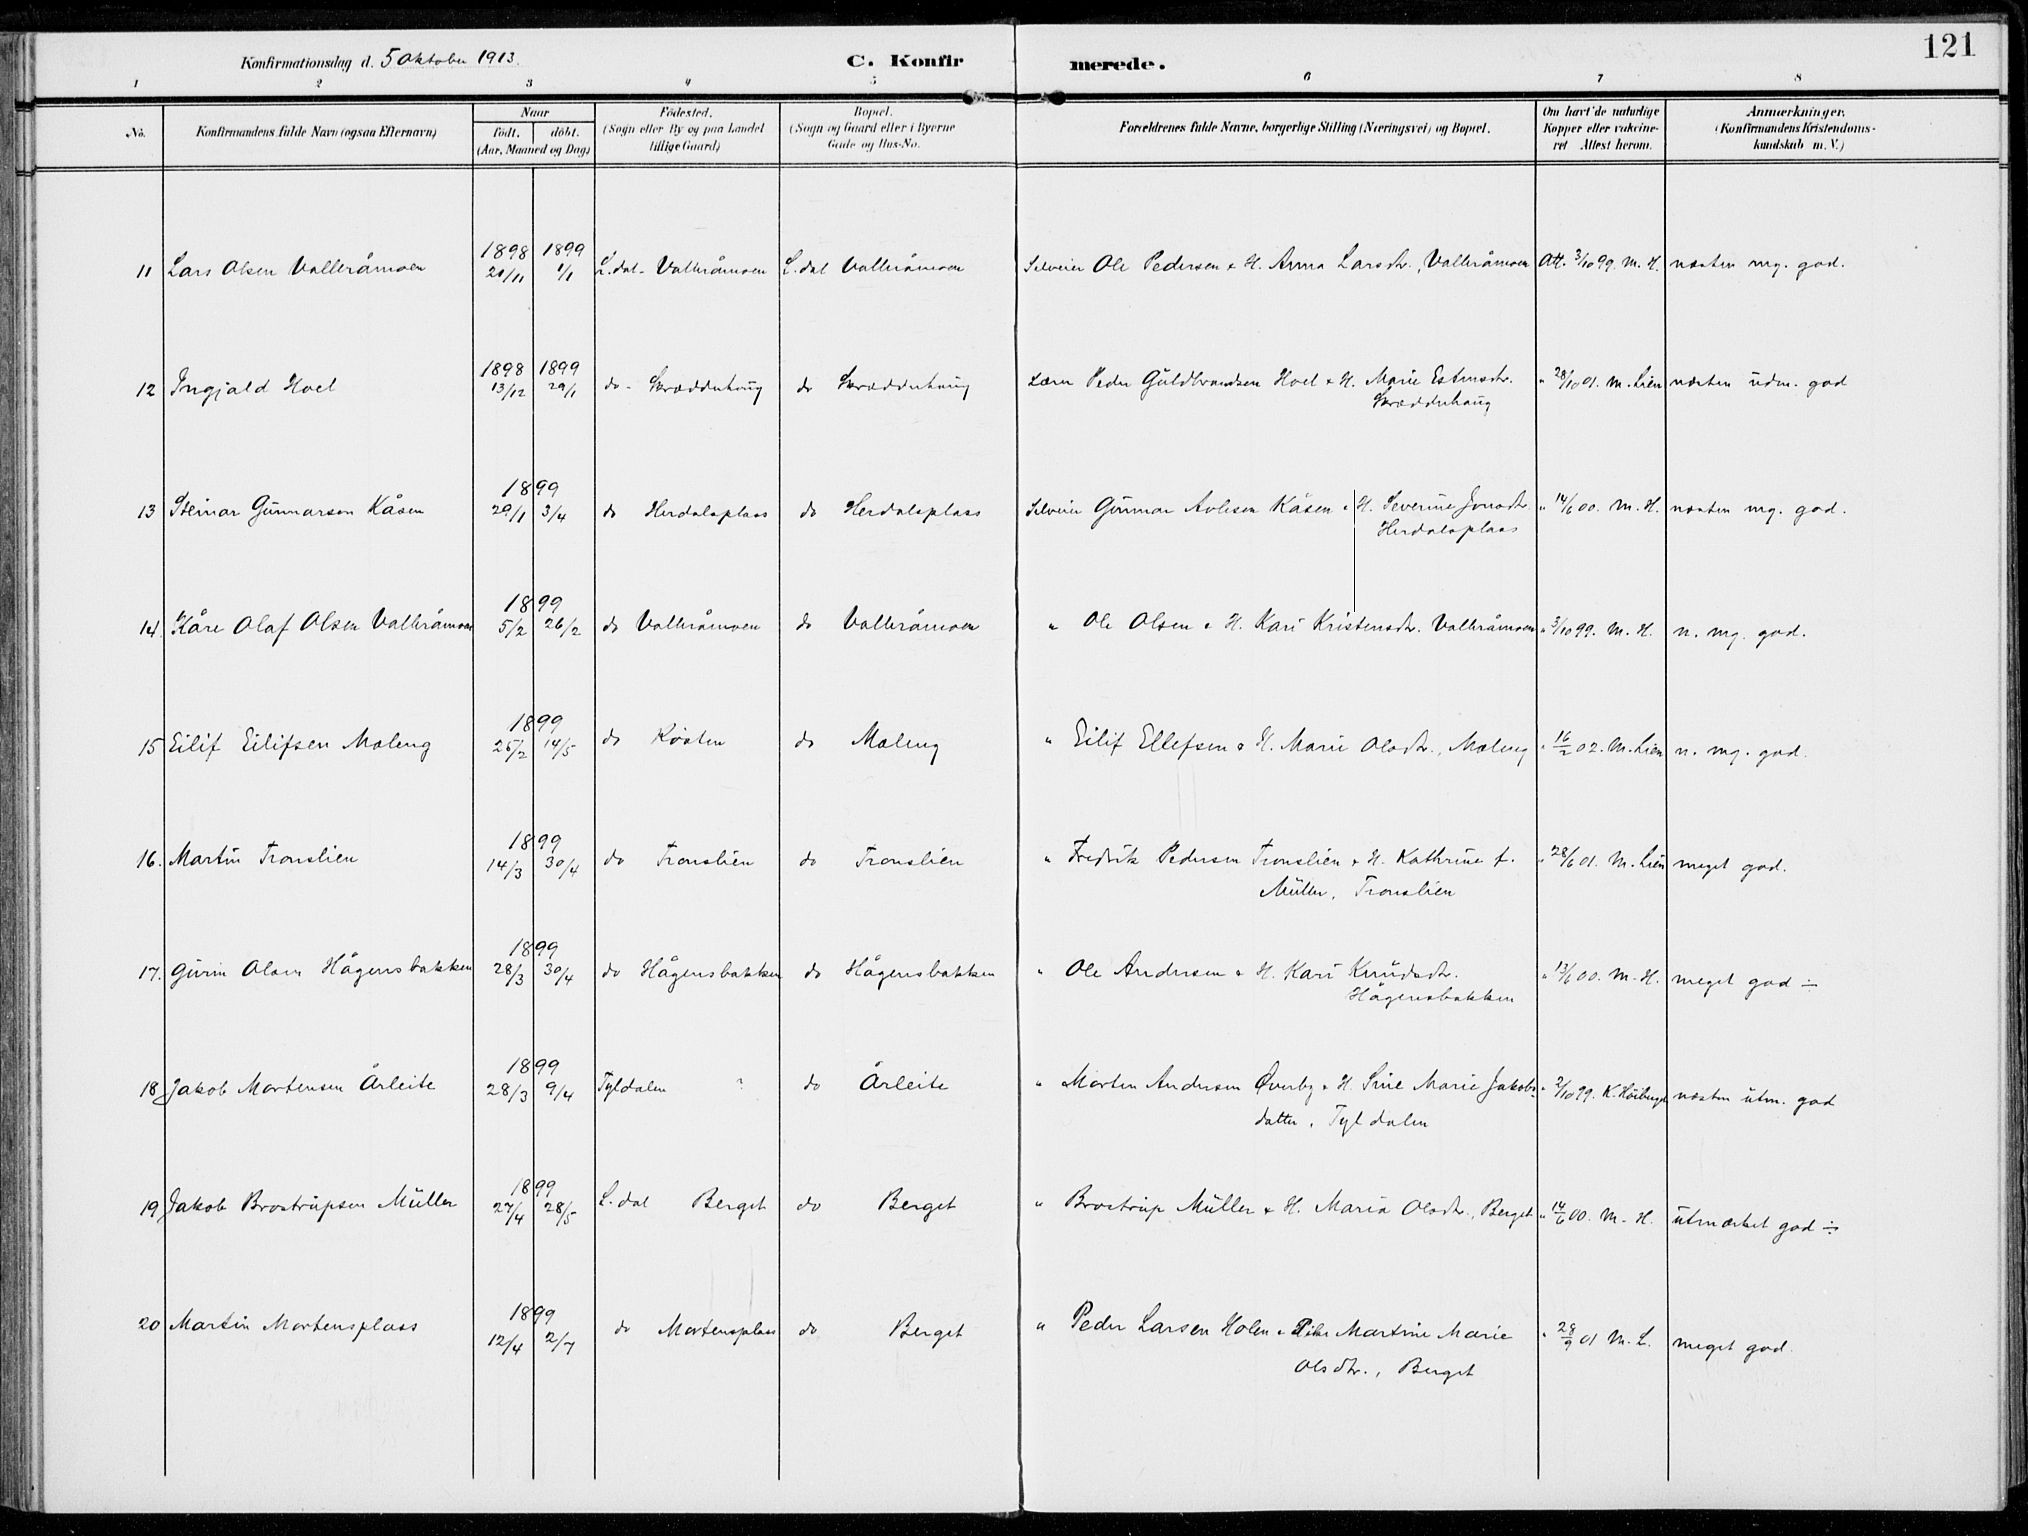 121
Konfirmationsdag d. 5 Oktober 1913.
C. Konfirmerede.
1 2 3 4 5 6 7 8
No. Konfirmandens fulde Navn (ogsaa Efternavn) Naar født. døbt. (Aar, Maaned og Dag) Fødested. (Sogn eller By og paa Landet tillige Gaard) Bopæl. (Sogn og Gaard eller i Byerne Gade og Hus-No. Forældrenes fulde Navne, borgerlige Stilling (Næringsvei) og Bopæl. Om havt de naturlige Kopper eller vakcineret Attest herom. Anmærkninger. (Konfirmandens Kristendomskundskab m. V.)
1898 1899
11 Lars Olsen Valleråmoen 20/11 1/1 L.dal - Vallråmoen L.dal Vallråmoen Selveier Ole Pedersen & H. Anna Larsdtr., Vallråmoen Att. 3/10 99. M. H. næsten mg. god.
1898 1899
12 Ingjald Hoel 13/12 29/1 do - Skrædderhaug do Skrædderhaug Lærer Peder Guldbrandsen Hoel & H. Marie Estensdtr. " 28/10 01. M. Lien næsten udm. god
Skrædderhaug
1899
13 Steinar Gunnarson Kåsen 29/1 3/4 do Herdalsplass do Herdalsplass Selveier Gunnar Avleson Kåsen & H. Severine Jonsdtr. " 14/6 00. M. H. næsten mg. god.
Herdalsplass
1899
14. Kåre Olaf Olsen Vallråmoen 5/2 26/2 do Vallråmoen do Vallråmoen " Ole Olsen & H. Kari Kristensdtr. Vallråmoen " 3/10 99. M. H. n. mg. god.
1899
15 Eilif Eilifsen Moleng 25/2 14/5 do Røsten do Moleng " Eilif Ellefsen & H. Marie Olsdtr., Moleng " 16/2 02. M. Lien n. mg. god.
1899
16. Martin Tronslien 14/3 30/4 do Tronslien do Tronslien " Fredrik Pedersen Tronslien & H. Kathrine f. " 28/6 01. M. Lien meget god.
Müller, Tronslien
1899
17. Gurin Olsen Hågensbakken 28/3 30/4 do Hågensbakken do Hågensbakken " Ole Andersen & H. Kari Knudsdtr. " 13/6 00. M. H. meget god ÷
Hågensbakken
1899
18 Jakob Mortensen Årleite 28/3 9/4 Tyldalen ? do Årleite " Morten Andersen Øverby & H. Sine Marie Jakobs- " 2/10 99. K. næsten utm. god
datter, Tyldalen
1899
19 Jakob Brostrupsen Müller 27/4 28/5 L.dal Berget do Berget " Brostrup Müller & H. Maria Olsdtr., Berget " 14/6 00. M. H. utmærket god ÷
1899
20 Martin Mortensplass 12/4 2/7 do Mortensplass do Berget " Peder Larsen Holen & Pike Martine Marie " 28/9 01 M. L. meget god.
Olsdtr., Berget